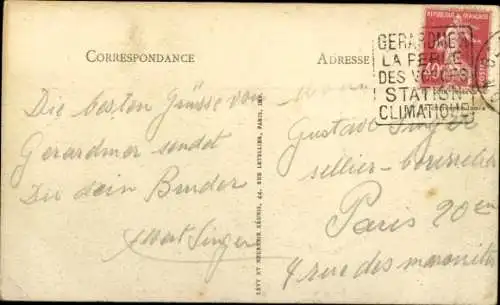 CORRESPONDANCE
ADRESSE
REPUBLIQUE FRANÇAISE
GERARDMER
LA PERLE
DES VOSGES
STATION
CLIMATIQUE
Die besten Grüsse von
Gerardmer sendet
Dir dein Bruder
Singer
LEVY ET NEURDEIN RÉUNIS, 44, RUE LETELLIER, PARIS, IMP.
Gustave Singer
sellier-bourrelier
Paris 20em
4 rue des maronites